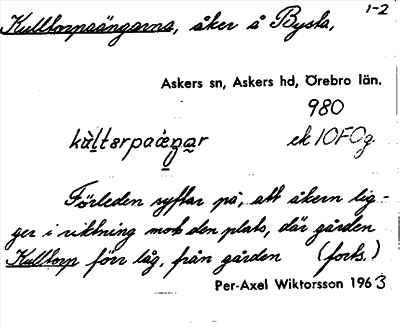 1-2
Kulltorpaängarna, åker å Bysta,
Askers sn, Askers hd, Örebro län.
980
kùlterpaäeŋar ek 10F0g
Förleden syftar på, att åkern lig-
ger i riktning mot den plats, där gården
Kulltorp förr låg, från gården (forts.)
Per-Axel Wiktorsson 1963